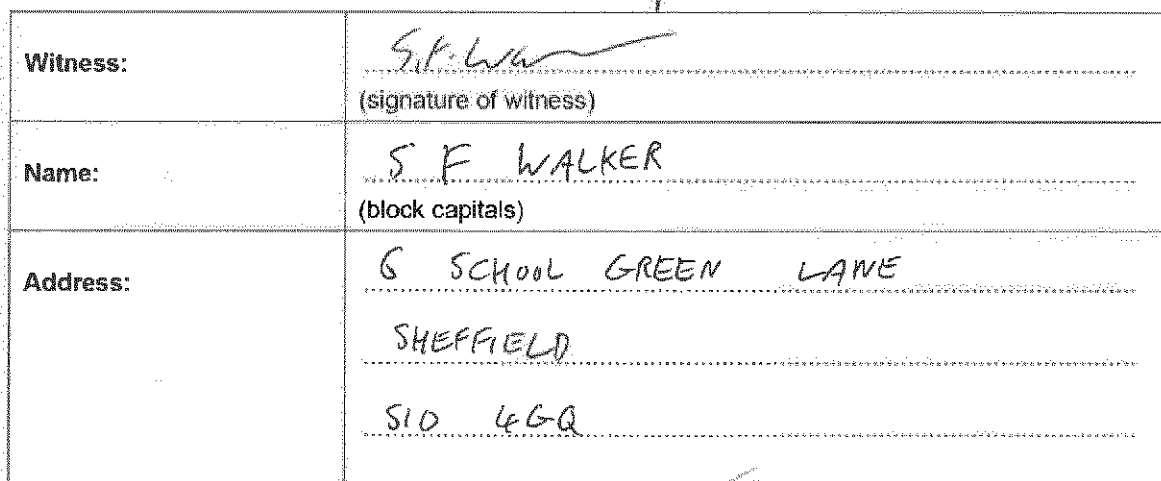 Witness:
S.F. Wa
(signature of witness)
Name:
S F WALKER
(block capitals)
Address:
6 SCHOOL GREEN LANE
SHEFFIELD
S10 4GQ